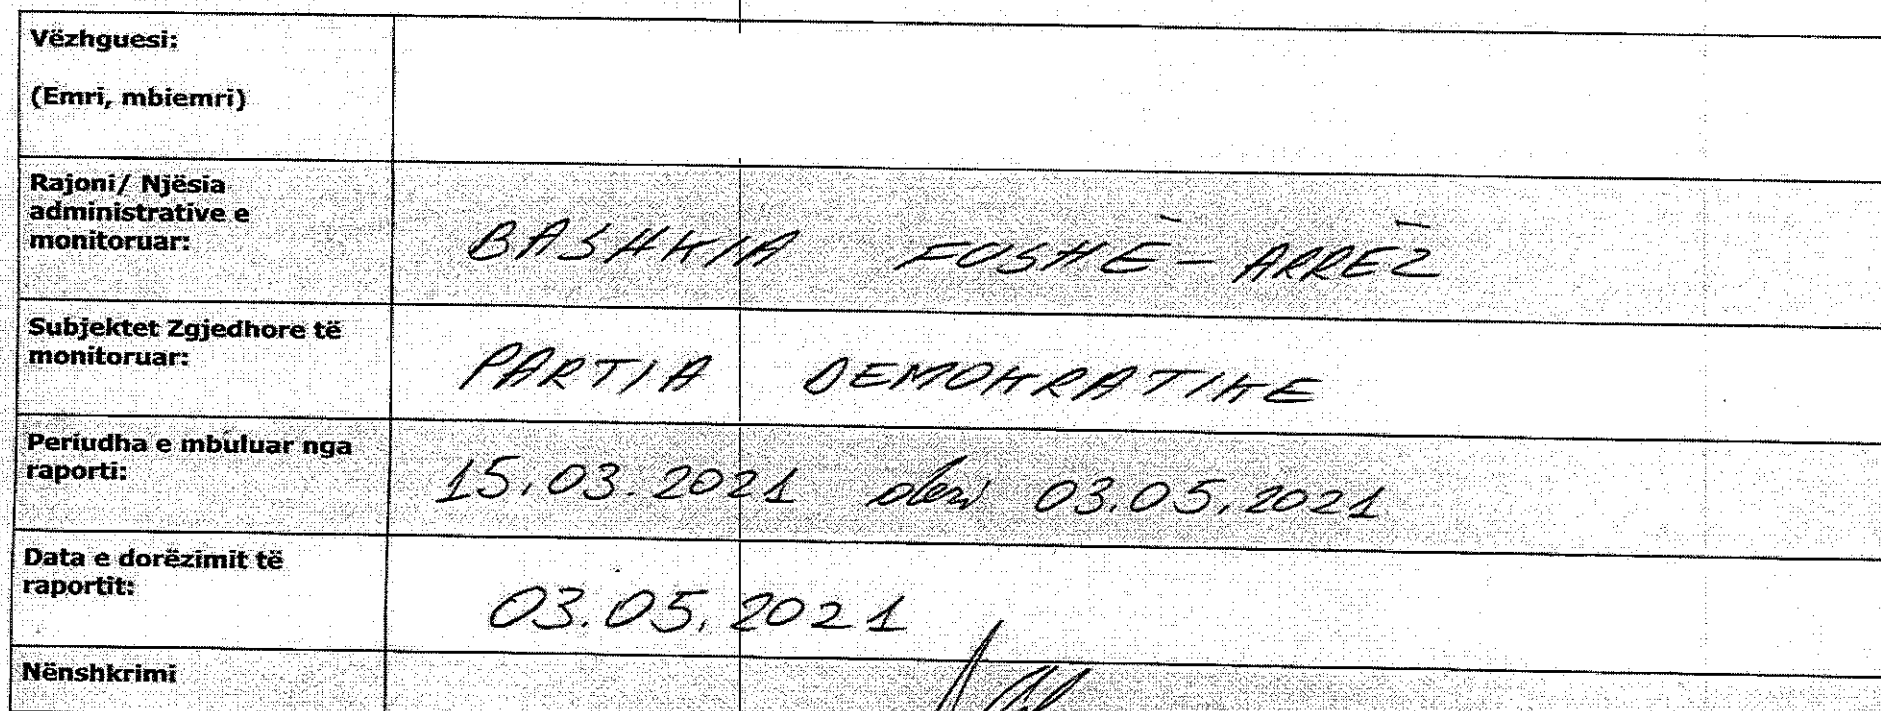 Vëzhguesi:
(Emri, mbiemri)
Rajoni/ Njësia
administrative e
monitoruar:
BASHKIA FUSHË-ARRËZ
Subjektet Zgjedhore të
monitoruar:
PARTIA DEMOKRATIKE
Periudha e mbuluar nga
raporti:
15.03.2021 deri 03.05.2021
Data e dorëzimit të
raportit:
03.05.2021
Nënshkrimi